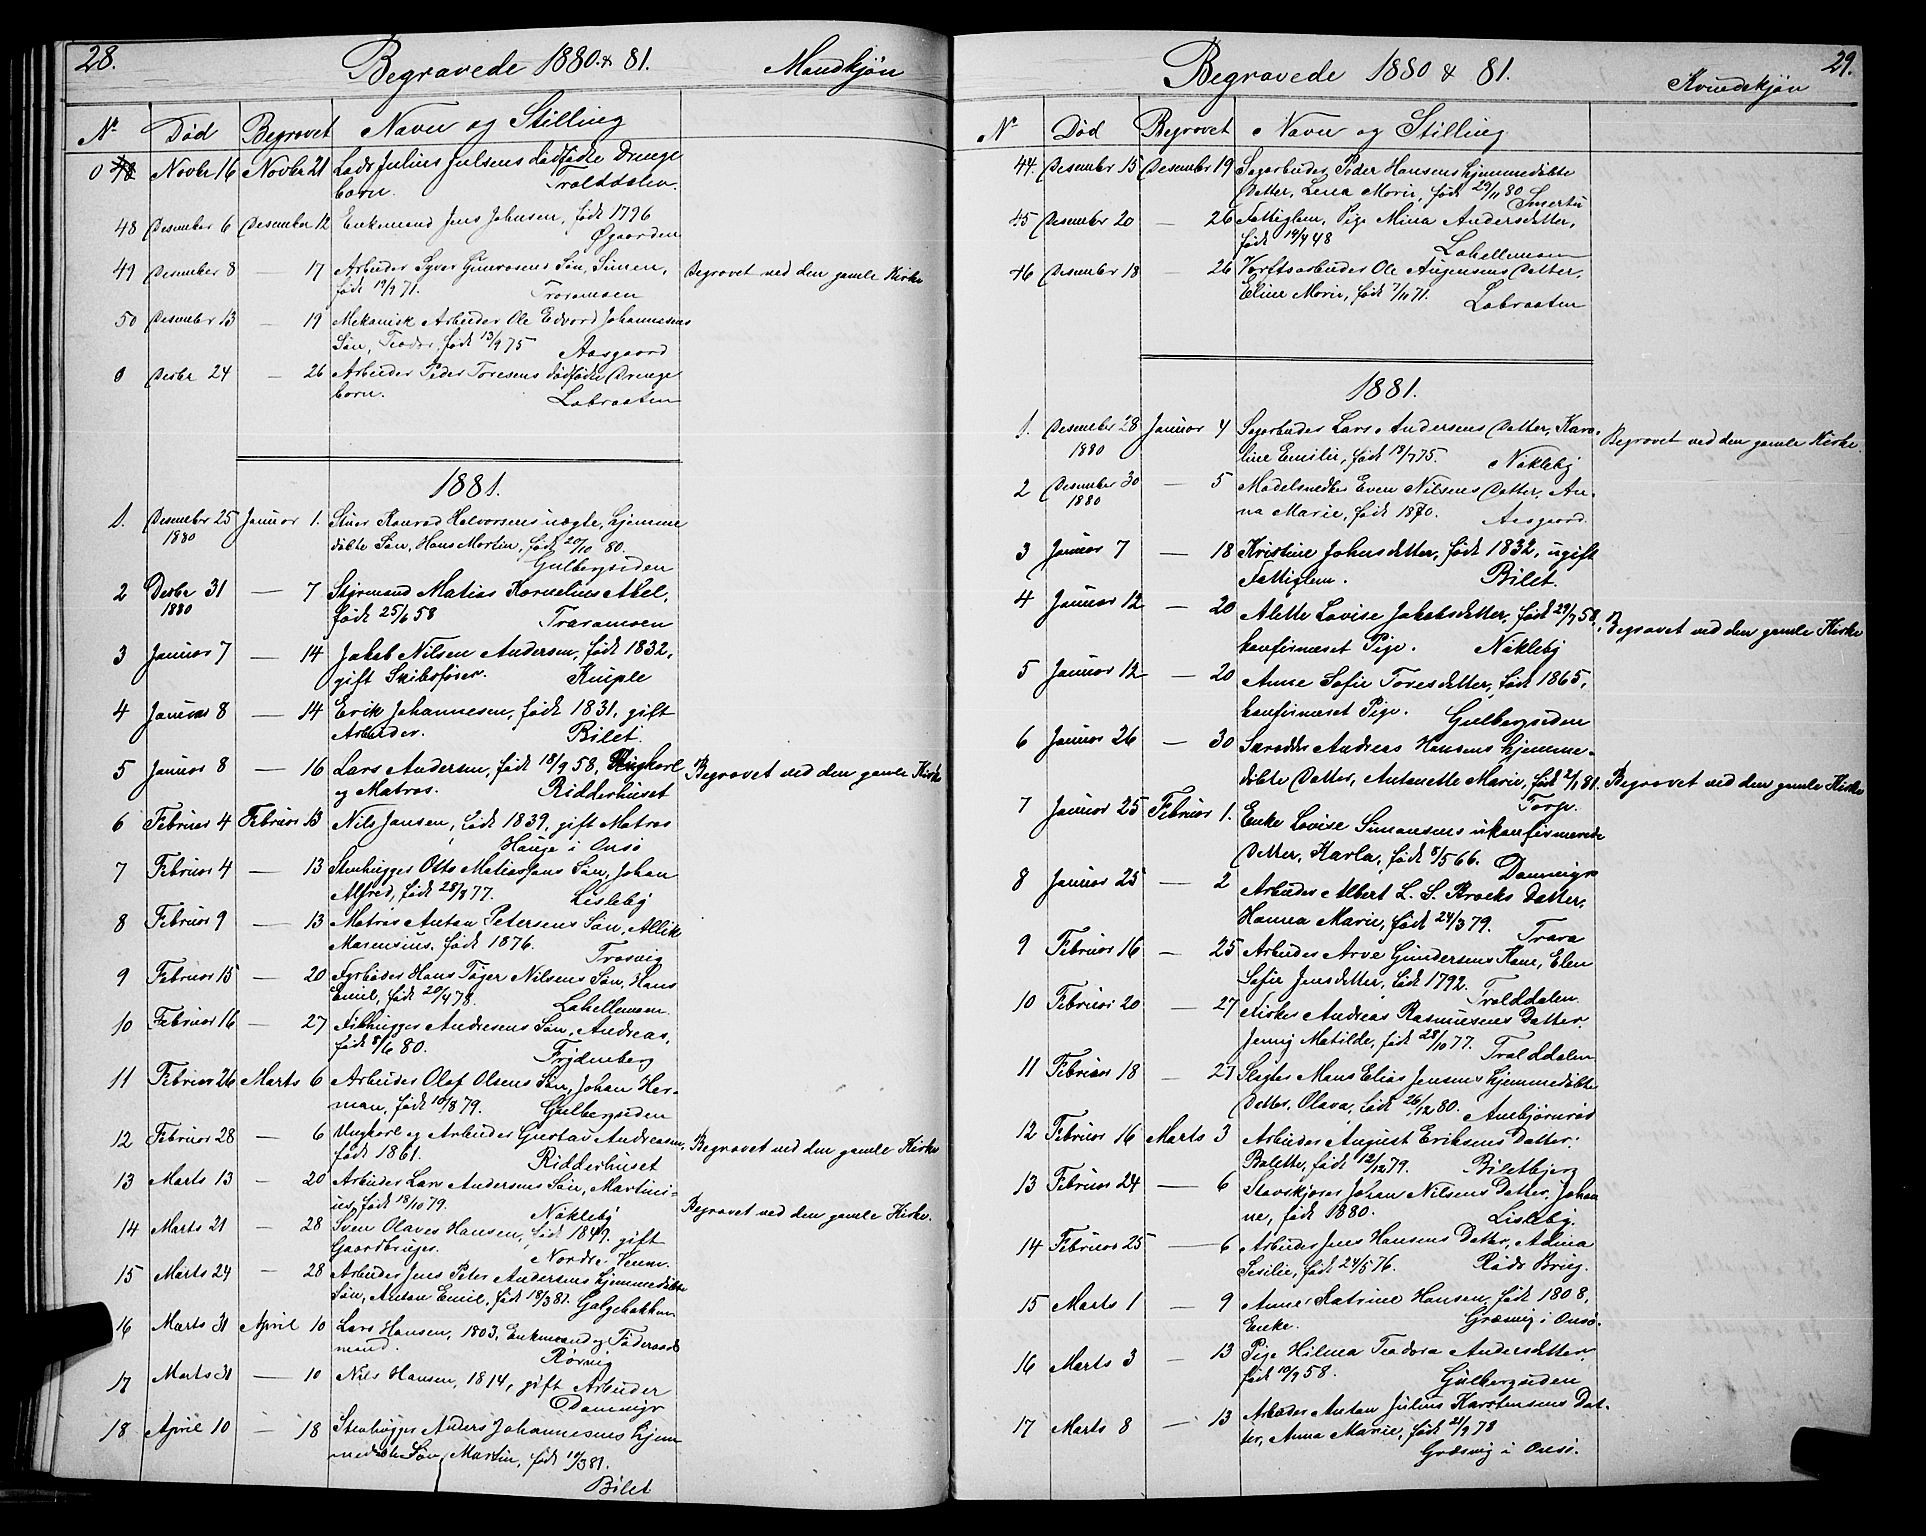 28.
Begravede 1880 & 81.
Mandkjøn
No Død Begravet Navn og Stilling
0 Novbr 16 Novbr 21 Lods Julius Julsens dødfødte Drenge
barn. Tralddalen.
48 Desember 6 Desember 12 Enkemand Jens Johnsen, født 1796
Øgaarden
49 Desember 8 — 17 Arbeider Syver Gunrosens Søn, Simen, Begravet ved den gamle Kirke
født 19/9 71. Traramoen
50 Desember 13 — 19 Mekanisk Arbeider Ole Edvard Johannesens
Søn, Teodor, født 13/9 75 Aasgaard
0 Desbr 24 — 26 Arbeider Peder Toresens dødfødte Drenge
barn. Labraaten
1881.
1. Desember 25 Januar 1. Stuer Konrad Halvorsens uægte, hjemme
1880 døbte Søn, Hans Martin, født 20/10 80.
Gulbergsiden
2 Desbr 31 — 7 Styrmand Matias Kornelius Abel,
1880 født 25/6 58 Traramoen
3 Januar 7 — 14 Jakob Nilsen Andersen, født 1832,
gift Skibsfører. Kniple
4 Januar 8 — 14 Erik Johannesen, født 1831, gift
Arbeider. Bilet.
5 Januar 8 — 16 Lars Andersen, født 18/9 58, Ungkarl Begravet ved den gamle Kirke
og Matros. Ridderhuset
6 Februar 4 Februar 13 Nils Jansen, født 1839, gift Matros
Hauge i Onsø
7 Februar 4 — 13 Stenhugger Otto Matiassens Søn, Johan
Alfred, født 28/8 77. Lisleby
8 Februar 9 — 13 Matros Anton Petersens Søn, Allik
Marensius, født 1876. Trosvig
9 Februar 15 — 20 Fyrbøder Hans Tøger Nilsens Søn, Hans
Emil, født 20/4 78. Lahellemoen
10 Februar 16 — 27 Filhugger Andresens Søn, Andreas,
født 8/6 80. Frydenberg
11 Februar 26 Marts 6 Arbeider Olaf Olsens Søn, Johan Her-
man, født 10/8 79. Gulbergsiden
12 Februar 28 — 6 Ungkarl og Arbeider Gustav Andreasen, Begravet ved den gamle Kirke
født 1861. Ridderhuset
13 Marts 13 — 20 Arbeider Lars Andersens Søn, Martini-
us, født 18/10 79. Nøkleby Begravet ved den gamle Kirke.
14 Marts 21 — 28 Sven Olaves Hansen, født 1849, gift
Gaardbruger. Nordre Kenne.
15 Marts 24 — 28 Arbeider Jens Peter Andersens hjemmedøbte
Søn, Anton Emil, født 18/3 81. Galgebakken
16 Marts 31 April 10 Lars Hansen, 1803, Enkemand og Føderaads
mand. Rørvig
17 Marts 31 — 10 Nils Hansen, 1814, gift Arbeider
Dammyr
18 April 10 — 18 Stenhugger Anders Johannesens hjem
medøbte Søn, Martin, født 10/3 81.
Bilet
29.
Begravede 1880 & 81.
Kvindekjøn
No Død Begravet Navn og Stilling
44. Desember 15 Desember 19 Sagarbeider Peder Hansens hjemmedøbte
Datter, Lena Marie, født 29/11 80 Smertu
45 Desember 20 — 26 Fattiglem, Pige Mina Andersdatter,
født 19/4 48 Lahellemoen
46 Desember 18 — 26 Verftsarbeider Ole Augensens Datter,
Eline Marie, født 7/11 71. Labraaten
1881.
1. Desember 28 Januar 4 Sagarbeider Lars Andersens Datter, Karo- Begravet ved den gamle Kirke.
1880 line Emilie, født 19/7 75. Nøkleby
2 Desember 30 — 5 Modelsnedker Even Nilsens Datter, An-
1880 na Marie, født 1870. Aasgaard.
3 Januar 7 — 18 Kristine Johnsdatter, født 1832, ugift
Fattiglem. Bilet.
4 Januar 12 — 20 Alette Lovise Jakobsdatter, født 29/7 58, Begravet ved den gamle Kirke
konfirmeret Pige. Nøkleby
5 Januar 12 — 20 Anne Sofie Toresdatter, født 1865,
konfirmeret Pige. Gulbergsiden
6 Januar 26 — 30 Andreas Hansens hjemme-
døbte Datter, Antonette Marie, født 2/1 81. Begravet ved den gamle Kirke
Torp.
7 Januar 25 Februar 1. Enke Lovise Simonsens ukonfirmerede
Datter, Karla, født 8/5 66. Dammyr
8 Januar 25 — 2 Arbeider Albert L. S. Krocks Datter,
Hanna Marie, født 24/3 79. Trara
9 Februar 16 — 25 Arbeider Arve Gundersens Kone, Elen
Sofie Jensdatter, født 1792. Tralddalen.
10 Februar 20 — 27 Fisker Andreas Rasmusens Datter,
Jenny Matilde, født 28/10 77. Tralddalen
11 Februar 18 — 27 Slagter Mons Elias Jensens hjemmedøbte
Datter, Olava, født 26/12 80. Ambjørnrød
12 Februar 16 Marts 3 Arbeider August Eriksens Datter,
Bolette, født 12/12 79. Biletbjerg
13 Februar 24 — 6 Stavskjærer Johan Nilsens Datter, Johan
ne, født 1880. Lisleby.
14 Februar 25 — 6 Arbeider Jens Hansens Datter, Adina
Sesilie, født 24/5 76. Røds Brug.
15 Marts 1 — 9 Anne Katrine Hansen, født 1808,
Enke. Græsvig i Onsø.
16 Marts 3 — 13 Pige Hilma Teodora Andersdatter,
født 19/9 58. Gulbergsiden
17 Marts 8 — 13 Arbeider Anton Julius Karstensens Dat-
ter, Anna Marie, født 21/9 78
Græsvig i Onsø.